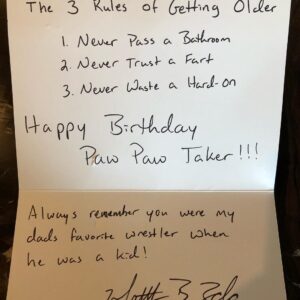 The 3 Rules of Getting Older
1. Never Pass a Bathroom
2. Never Trust a Fart
3. Never Waste a Hard-on
Happy Birthday
Paw Paw Taker!!!
Always remember you were my
dads favorite wrestler when
he was a kid!